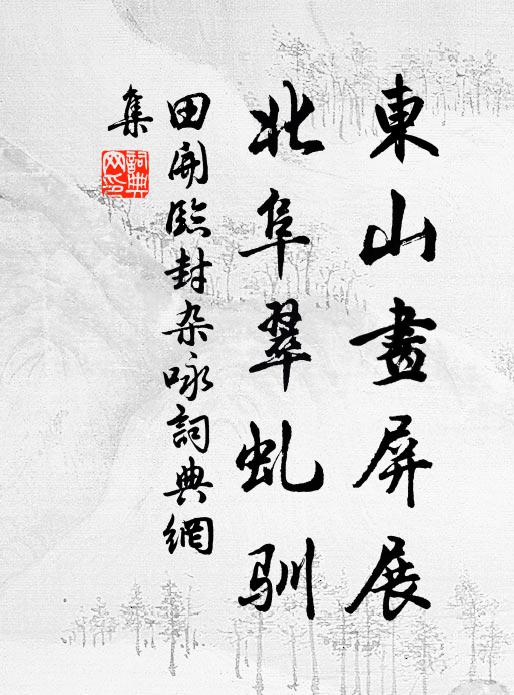 東山畫屏展
北阜翠虬馴
田開臨封杂咏詞典網
集
詞典
网印